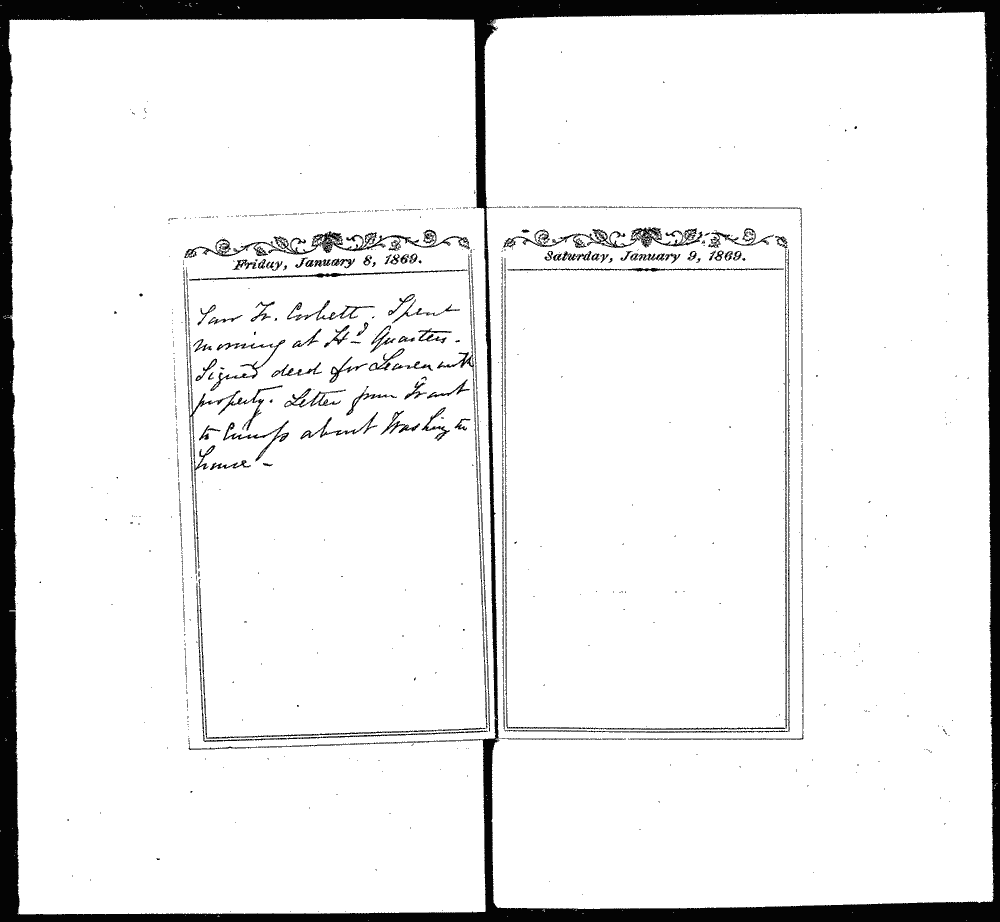 Friday, January 8, 1869.
Saw Fr. Corbett. Spent
morning at Hd Quarters.
Signed deed for Leavenworth
property. Letter from Grant
to Cump about Washington
house –
Saturday, January 9, 1869.